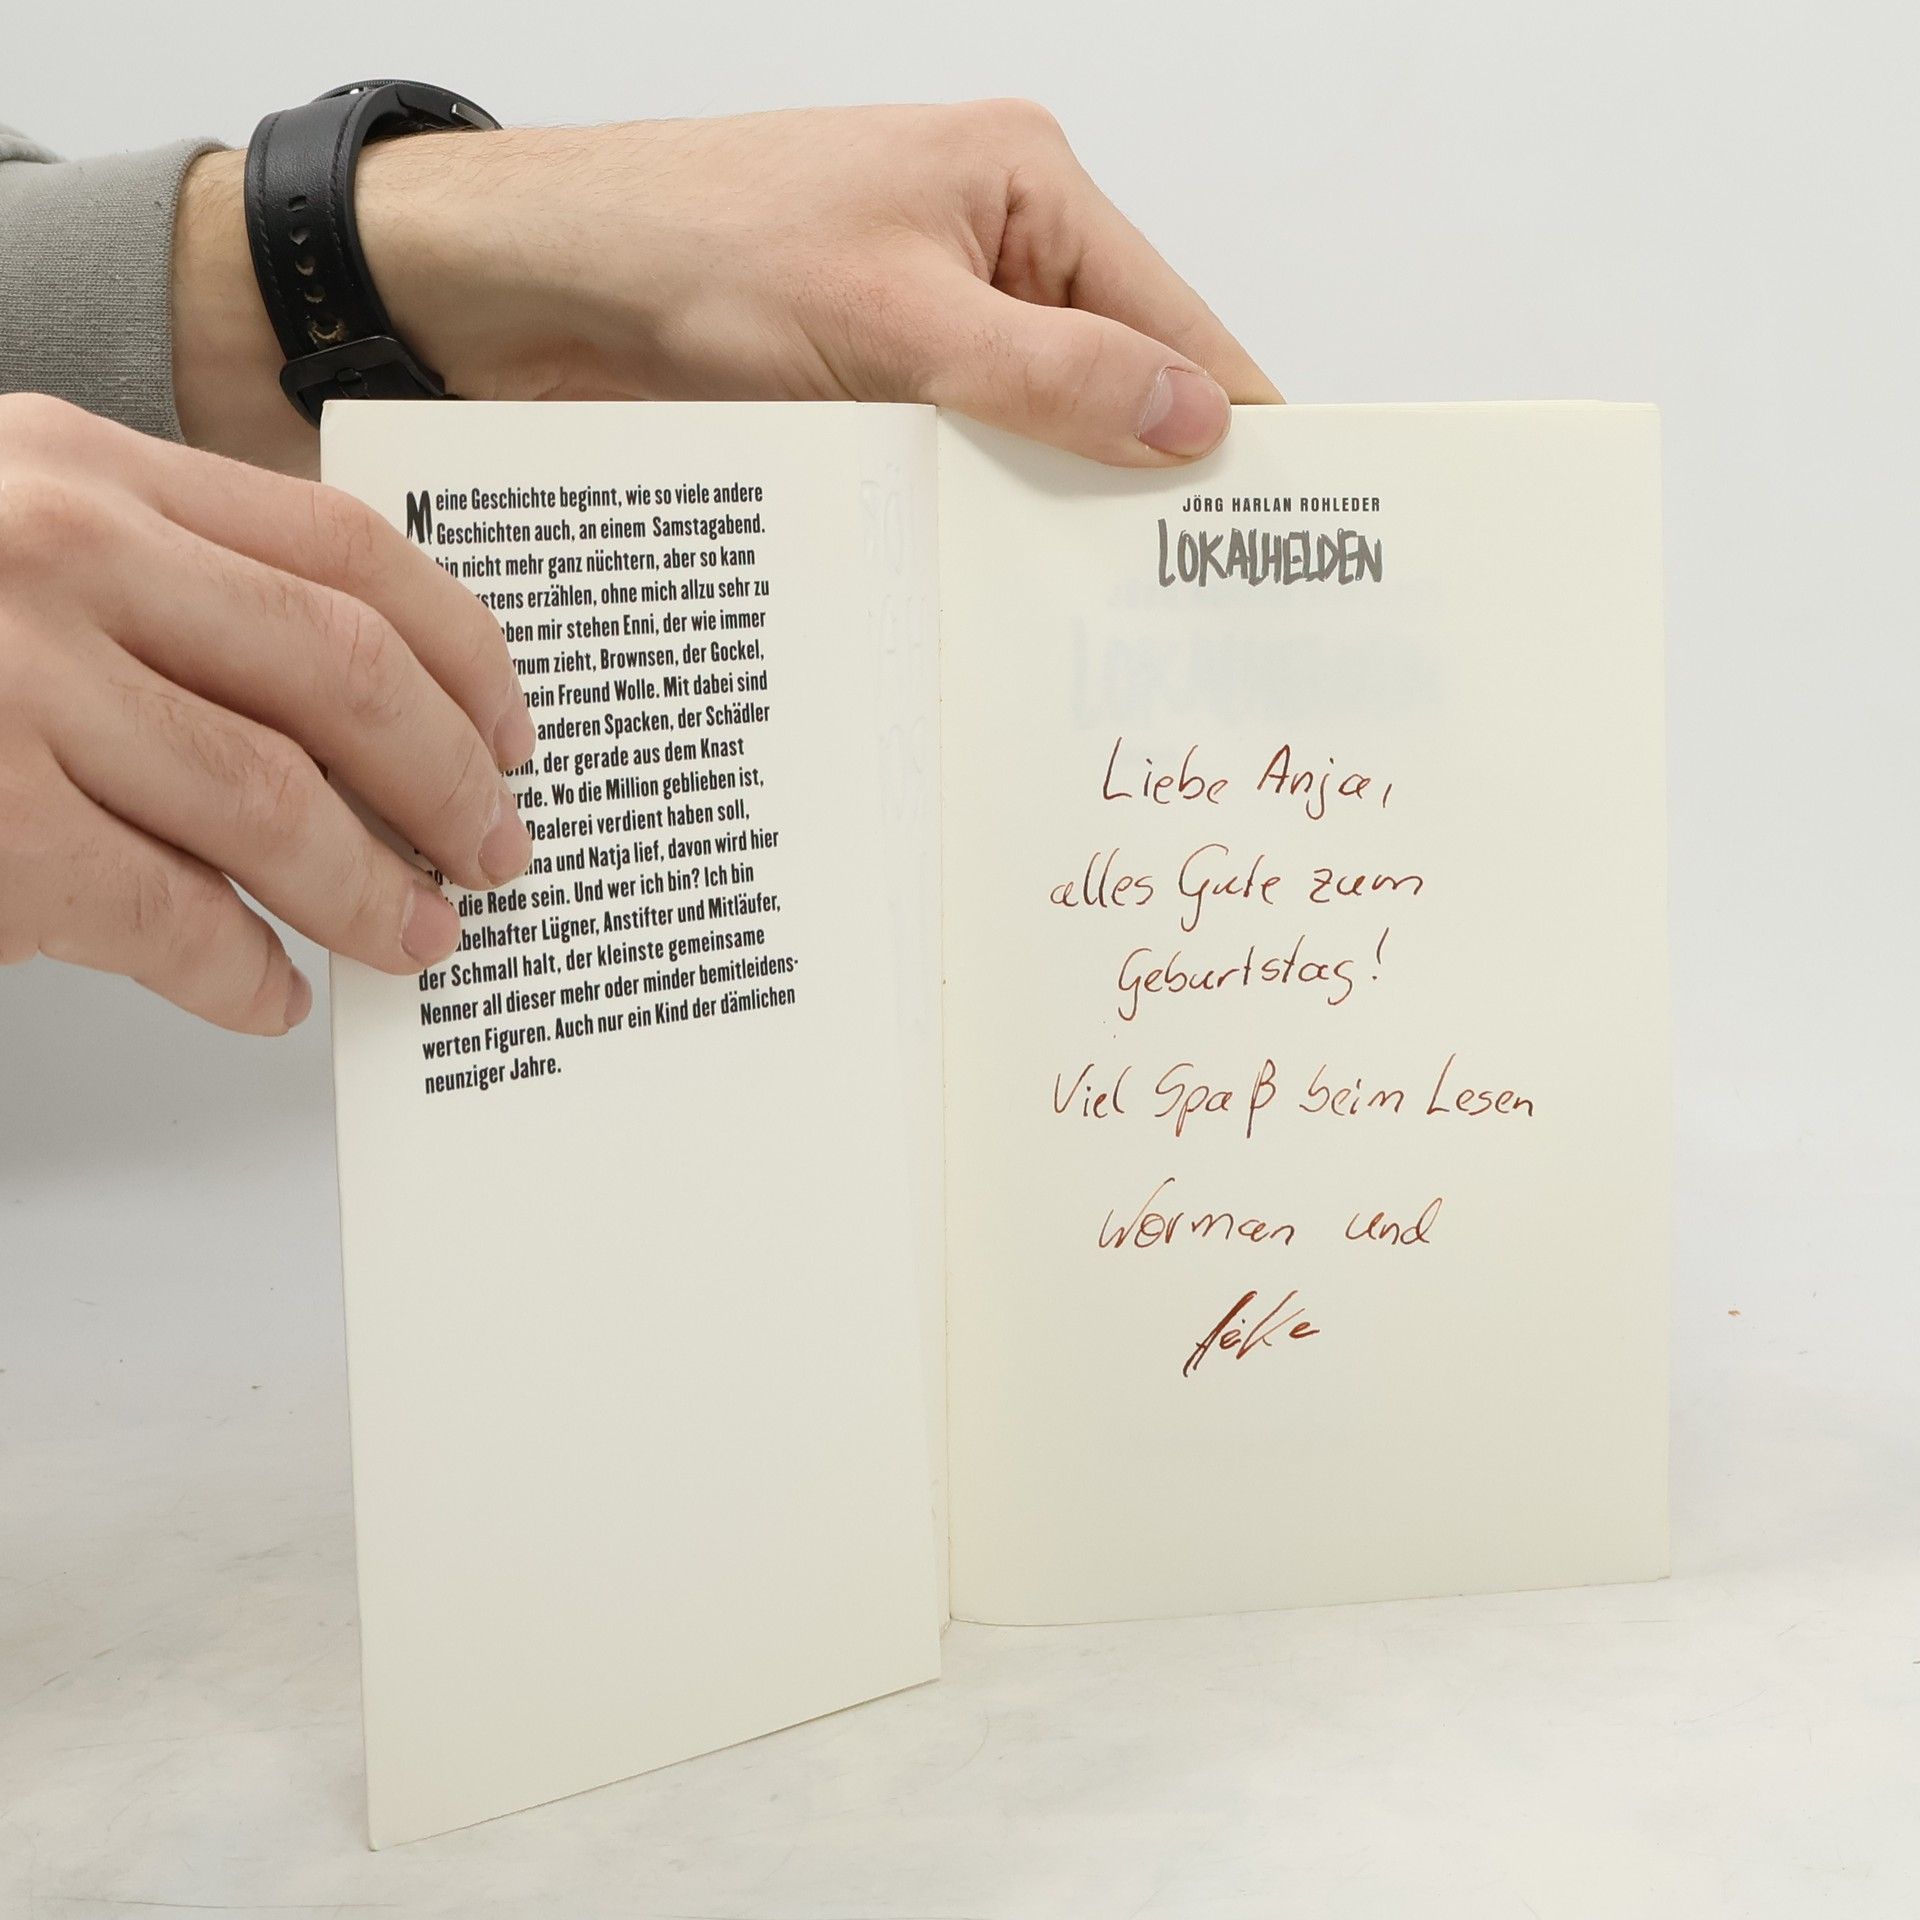 Meine Geschichte beginnt, wie so viele andere
Geschichten auch, an einem Samstagabend.
bin nicht mehr ganz nüchtern, aber so kann
erzählen, ohne mich allzu sehr zu
mir stehen Enni, der wie immer
zieht, Brownsen, der Gockel,
mein Freund Wolle. Mit dabei sind
anderen Spacken, der Schädler
der gerade aus dem Knast
Wo die Million geblieben ist,
Dealerei verdient haben soll,
und Natja lief, davon wird hier
die Rede sein. Und wer ich bin? Ich bin
Lügner, Anstifter und Mitläufer,
der Schmall halt, der kleinste gemeinsame
Nenner all dieser mehr oder minder bemitleidens-
werten Figuren. Auch nur ein Kind der dämlichen
neunziger Jahre.
JÖRG HARLAN ROHLEDER
LOKALHELDEN
Liebe Anja,
alles Gute zum
Geburtstag!
Viel Spaß beim Lesen
und